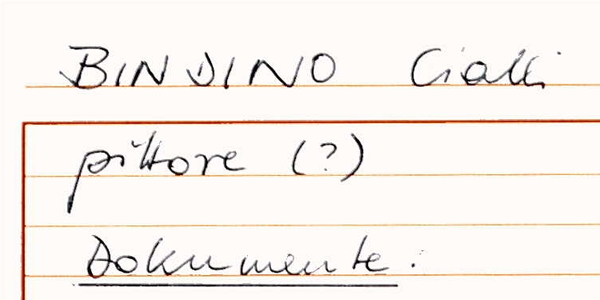 BINDINO Cialli
pittore (?)
Dokumente: